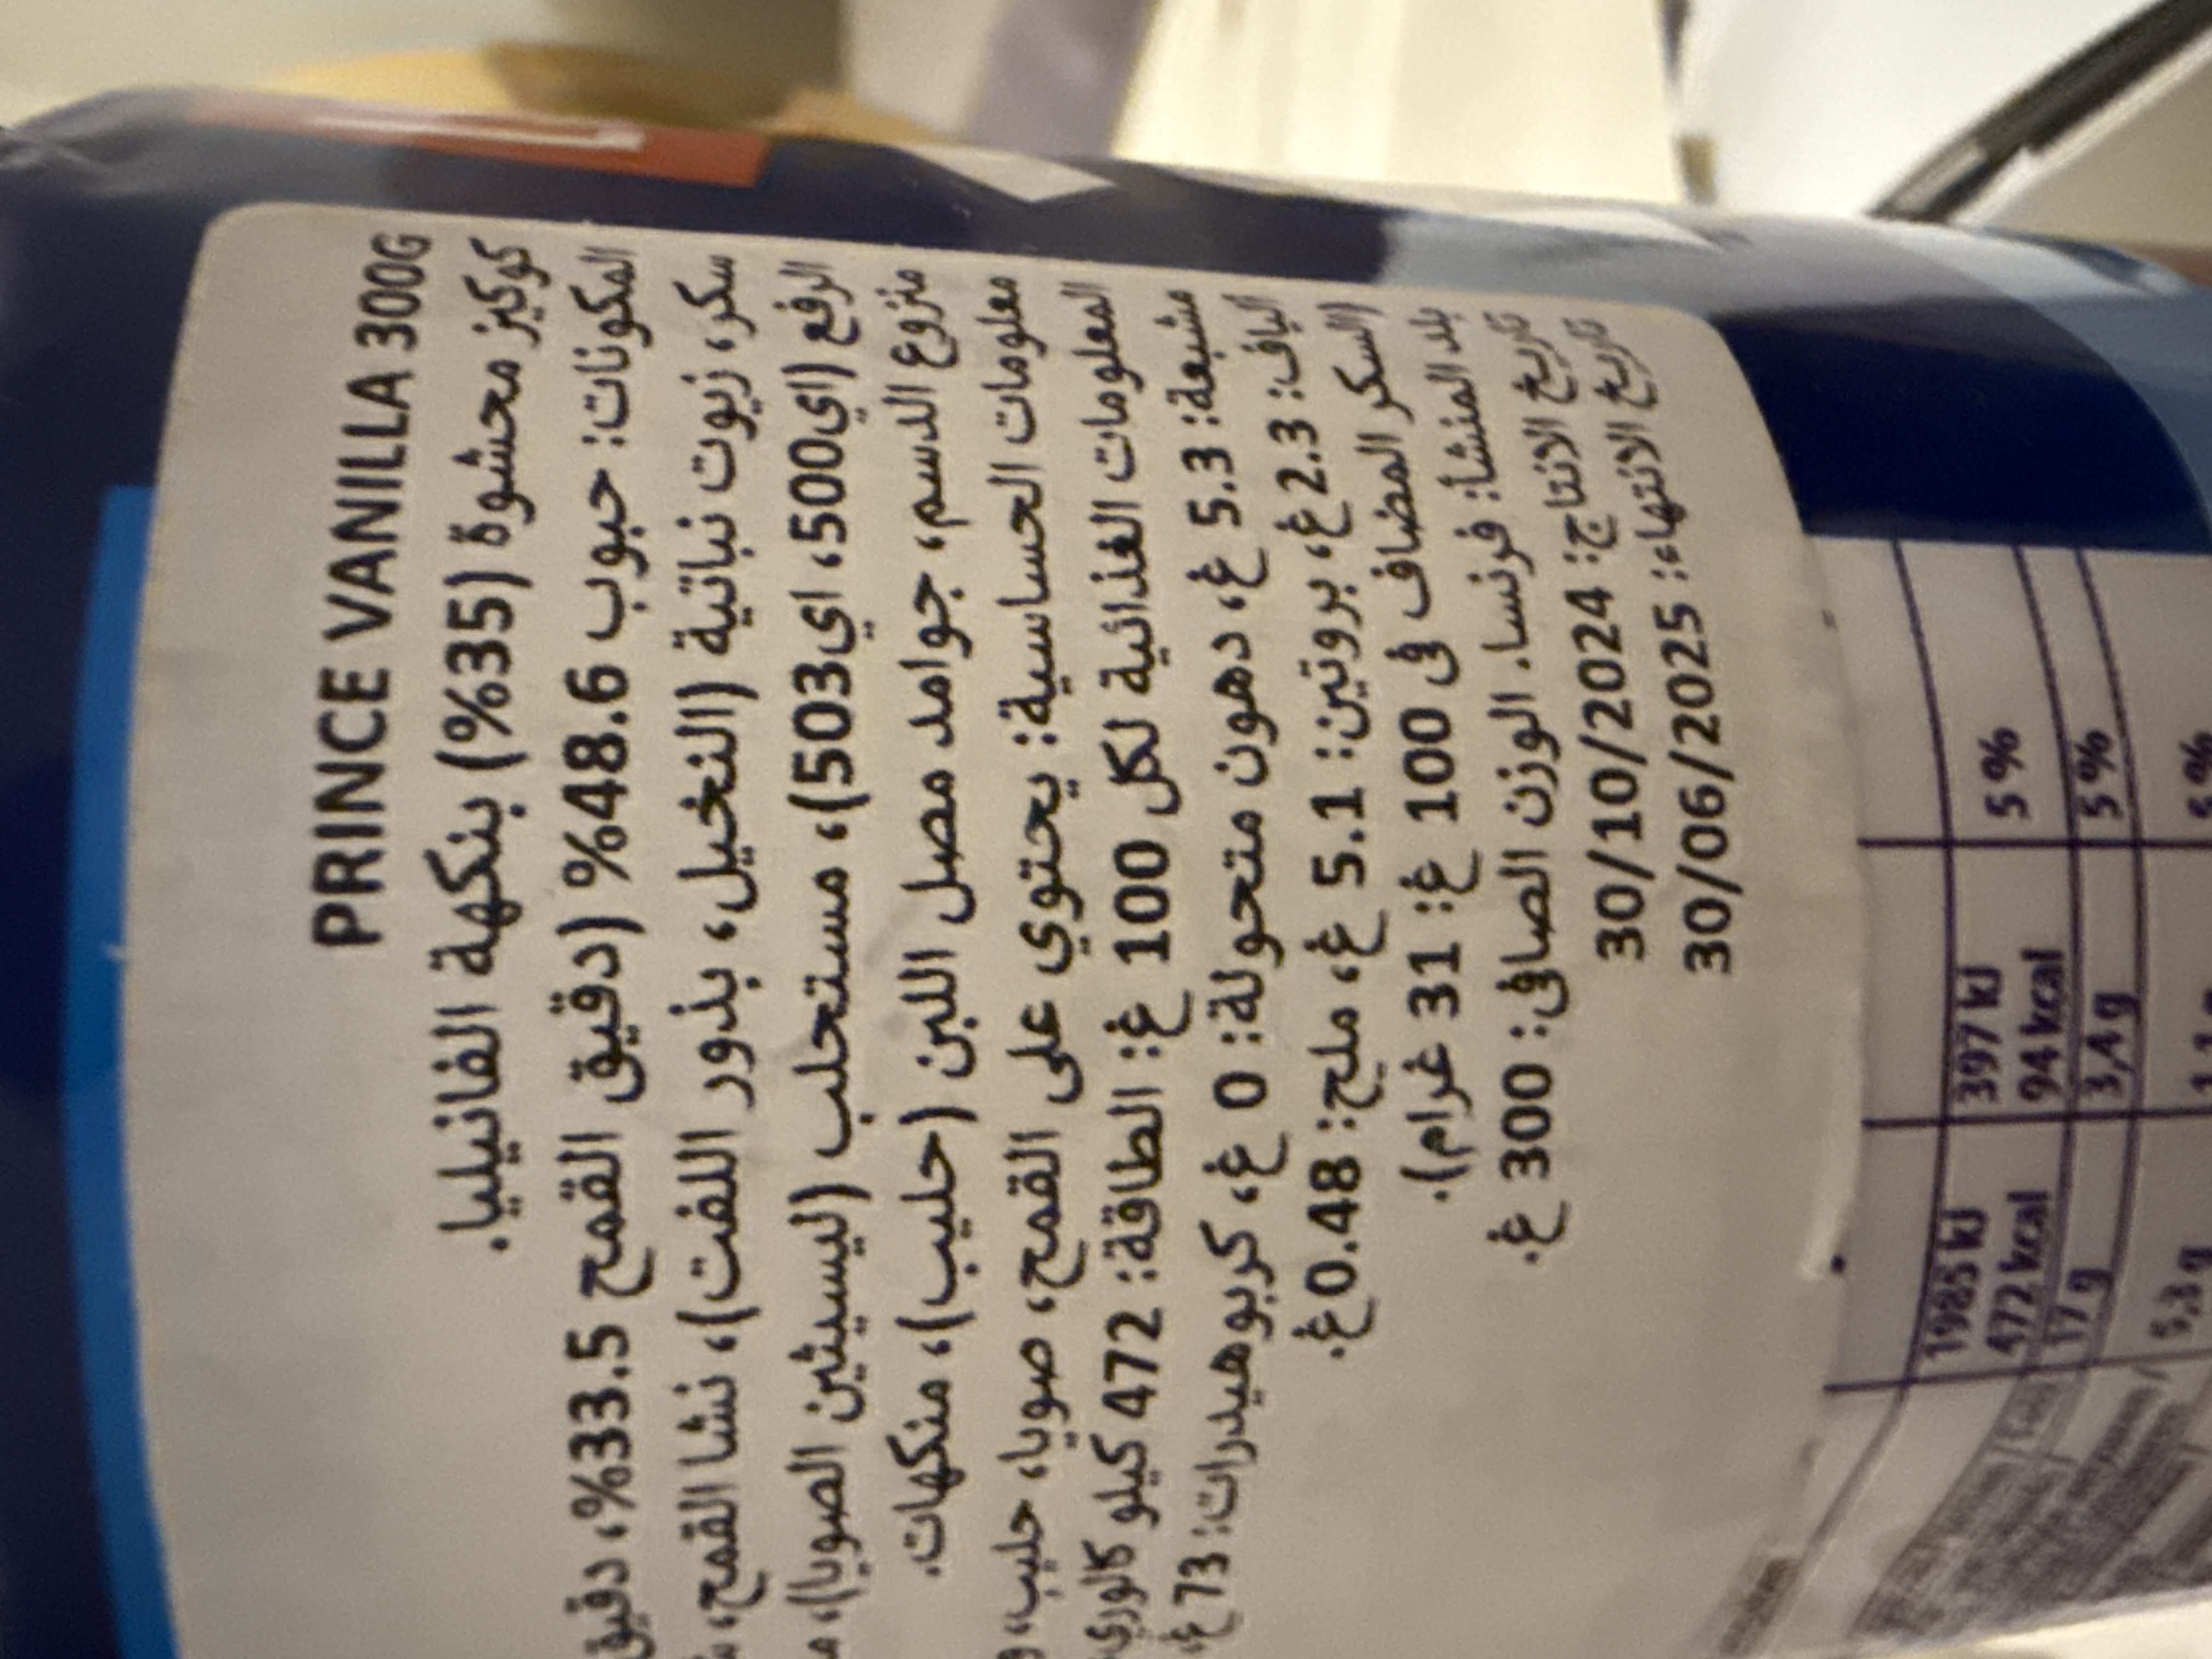 PRINCE VANILLA 300G
كوكيز محشوة (35%) بنكهة الفانيليا.
المكونات: حبوب 48.6% (دقيق القمح 33.5%، دقيق
سكر، زيوت نباتية (النخيل، بذور اللفت)، نشا القمح،
الرفع (اي500، اي503)، مستحلب (ليسيثين الصويا)،
منزوع الدسم، جوامد مصل اللبن (حليب)، منكهات.
معلومات الحساسية: يحتوي على القمح، صويا، حليب،
المعلومات الغذائية لكل 100 غ: الطاقة: 472 كيلو كالوري
مشبعة: 5.3 غ، دهون متحولة: 0 غ، كربوهيدرات: 73 غ،
الياف: 2.3غ، بروتين: 5.1 غ، ملح: 0.48غ.
(السكر المضاف في 100 غ: 31 غرام).
بلد المنشأ: فرنسا. الوزن الصافي: 300 غ.
تاريخ الانتاج: 30/10/2024
تاريخ الانتهاء: 30/06/2025
1985 kJ 397 kJ 5 %
472 kcal 94 kcal
17 g 3,4 g 5 %
5,3 g